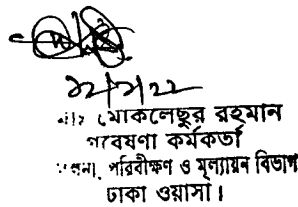 ১২/১/২২
মোঃ মোকলেছুর রহমান
গবেষণা কর্মকর্তা
পরিবীক্ষণ ও মূল্যায়ন বিভাগ
ঢাকা ওয়াসা।